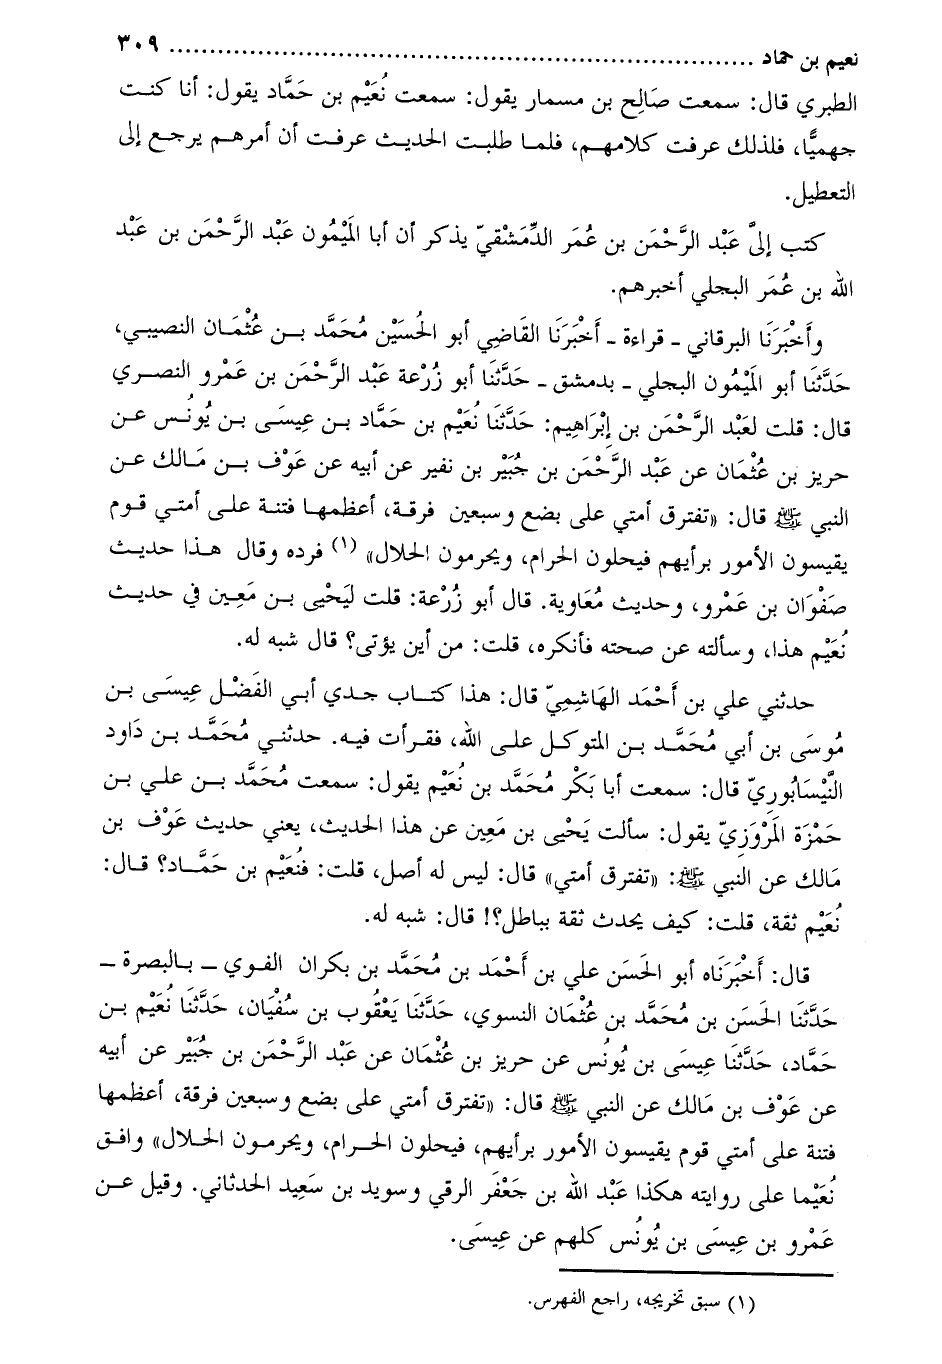 نعيم بن حماد .......................................................................... ٣٠٩
الطبري قال: سمعت صَالِح بن مسمار يقول: سمعت نُعَيْم بن حَمَّاد يقول: أنا كنت
جهميًّا، فلذلك عرفت كلامهم، فلما طلبت الحديث عرفت أن أمرهم يرجع إلى
التعطيل.
كتب إليَّ عَبْد الرَّحْمَن بن عُمَر الدِّمَشْقيّ يذكر أن أبا المَيْمُون عَبْد الرَّحْمَن بن عَبْد
الله بن عُمَر البجلي أخبرهم.
وأَخْبَرَنَا البرقاني ـ قراءة ـ أَخْبَرَنَا القَاضِي أبو الحُسَيْن مُحَمَّد بن عُثْمَان النصيبي،
حَدَّثَنَا أبو المَيْمُون البجلي ـ بدمشق ـ حَدَّثَنَا أبو زُرْعة عَبْد الرَّحْمَن بن عَمْرو النصري
قال: قلت لعَبْد الرَّحْمَن بن إِبْرَاهِيم: حَدَّثَنَا نُعَيْم بن حَمَّاد بن عِيسَى بن يُونُس عن
حريز بن عُثْمَان عن عَبْد الرَّحْمَن بن جُبَيْر بن نفير عن أبيه عن عَوْف بن مَالك عن
النبي ﷺ قال: «تفترق أمتي على بضع وسبعين فرقة، أعظمها فتنة على أمتي قوم
يقيسون الأمور برأيهم فيحلون الحرام، ويحرمون الحلال» (١) فرده وقال هذا حديث
صَفْوَان بن عَمْرو، وحديث مُعَاوية. قال أبو زُرْعة: قلت ليَحْيى بن مَعِين في حديث
نُعَيْم هذا، وسألته عن صحته فأنكره، قلت: من أين يؤتى؟ قال شبه له.
حدثني علي بن أَحْمَد الهَاشِمِيّ قال: هذا كتاب جدي أبي الفَضْل عِيسَى بن
مُوسَى بن أبي مُحَمَّد بن المتوكل على الله، فقرأت فيه. حدثني مُحَمَّد بن دَاود
النَّيْسَابُوريّ قال: سمعت أبا بَكْر مُحَمَّد بن نُعَيْم يقول: سمعت مُحَمَّد بن علي بن
حَمْزَة المَرْوَزِيّ يقول: سألت يَحْيَى بن مَعِين عن هذا الحديث، يعني حديث عَوْف بن
مَالك عن النبي ﷺ: «تفترق أمتي» قال: ليس له أصل، قلت: فنُعَيْم بن حَمَّاد؟ قال:
نُعَيْم ثقة، قلت: كيف يحدث ثقة بباطل؟! قال: شبه له.
قال: أَخْبَرَنَاه أبو الحَسَن علي بن أَحْمَد بن مُحَمَّد بن بكران الفوي ـ بالبصرة ـ
حَدَّثَنَا الحَسَن بن مُحَمَّد بن عُثْمَان النسوي، حَدَّثَنَا يَعْقُوب بن سُفْيَان، حَدَّثَنَا نُعَيْم بن
حَمَّاد، حَدَّثَنَا عِيسَى بن يُونُس عن حريز بن عُثْمَان عن عَبْد الرَّحْمَن بن جُبَيْر عن أبيه
عن عَوْف بن مَالك عن النبي ﷺ قال: «تفترق أمتي على بضع وسبعين فرقة، أعظمها
فتنة على أمتي قوم يقيسون الأمور برأيهم، فيحلون الحرام، ويحرمون الحلال» وافق
نُعَيْما على روايته هكذا عَبْد الله بن جَعْفَر الرقي وسويد بن سَعِيد الحدثاني. وقيل عن
عَمْرو بن عِيسَى بن يُونُس كلهم عن عِيسَى.
(١) سبق تخريجه، راجع الفهرس.